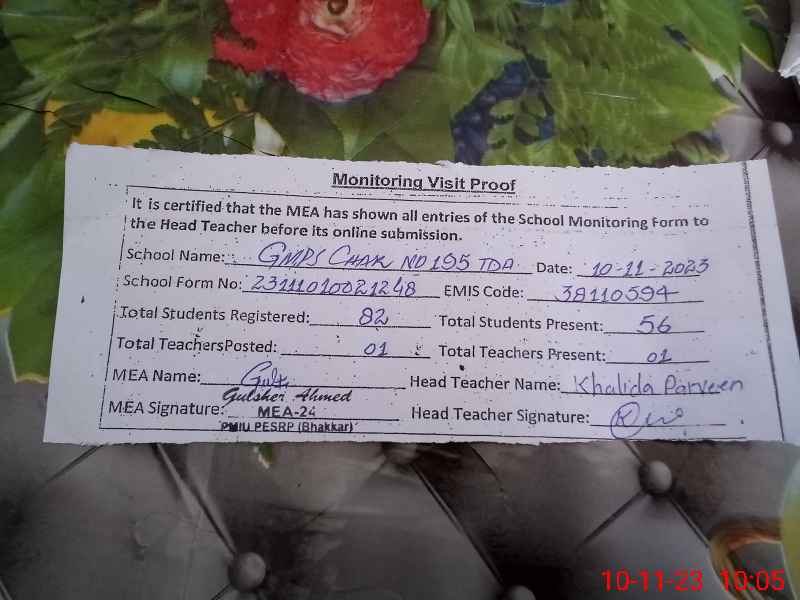 Monitoring Visit Proof
It is certified that the MEA has shown all entries of the School Monitoring Form to
the Head Teacher before its online submission.
School Name: GMPS CHAK NO 195 TDA Date: 10-11-2023
School Form No: 23111010021248 EMIS Code: 38110594
Total Students Registered: 82 Total Students Present: 56
Total TeachersPosted: 01 Total Teachers Present: 01
MEA Name: Head Teacher Name: Khalida Parveen
Gulsher Ahmed
MEA Signature: MEA-24 Head Teacher Signature:
PMIU PESRP (Bhakkar)
10-11-23 10:05